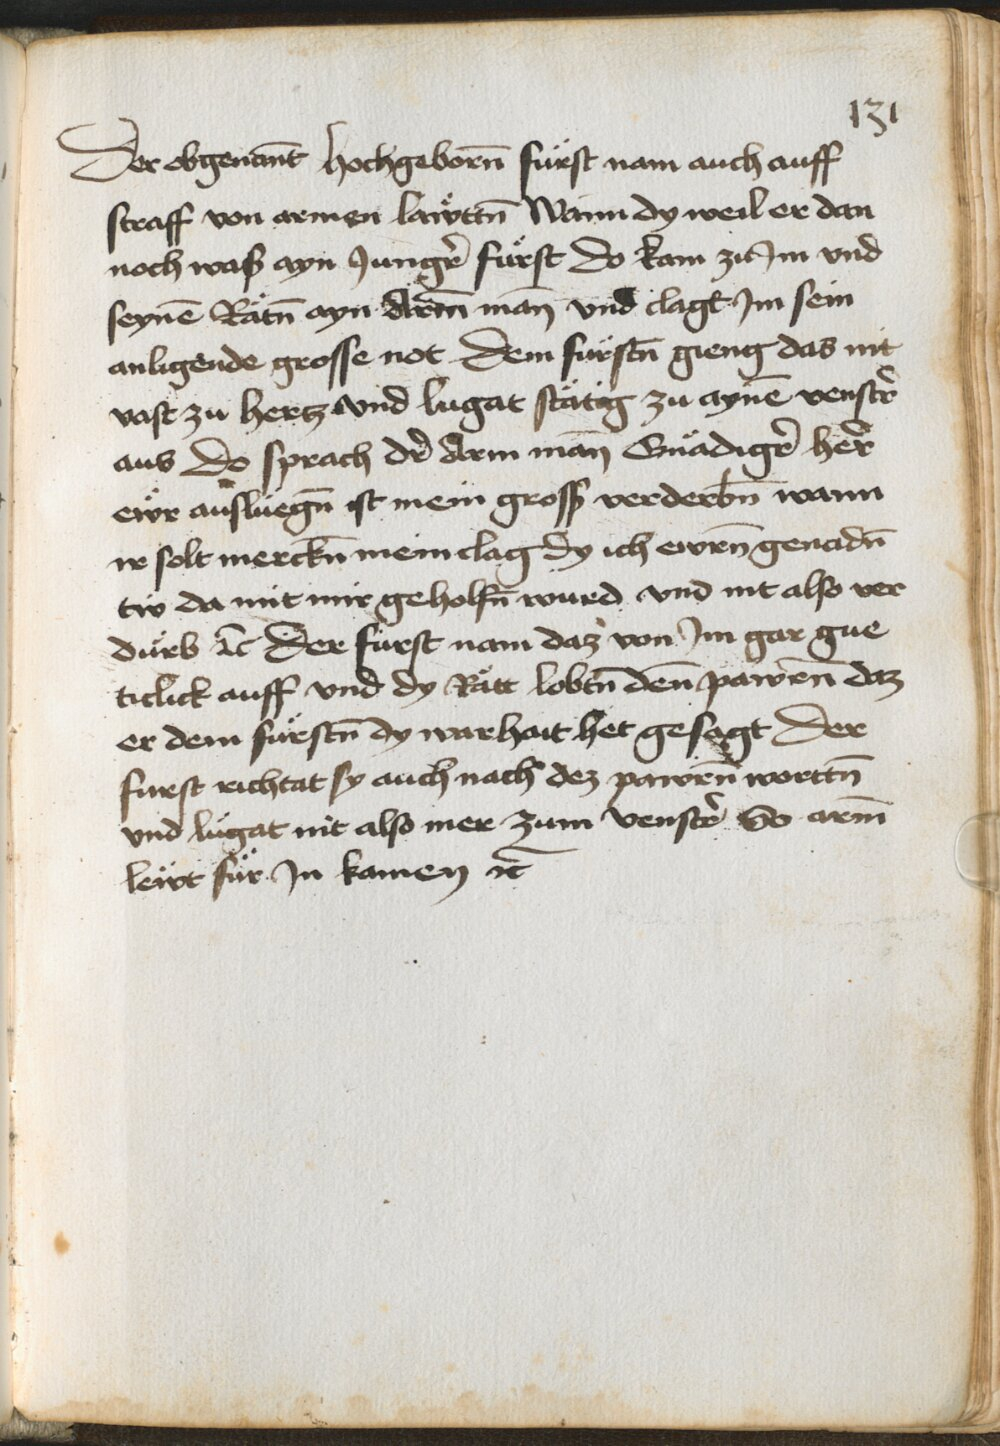 131
Der obgenant̄ hochgeborn̄ fürst nam auch auff
straff von armen läẅttn̄ Wann dy weil er dan
noch waß ayn Jungr̄ fürst do kam zu Jm vnd
seynē Rätn̄ ayn Arm̄ man̄ vnd clagt Jm sein
anligende grosse not Dem fürstn̄ gieng das nit
vast zu hertz vnd lugat stätig zu aynē venstr̄
aus Do sprach dr̄ Arm man̄ Gnädigr̄ her̄
ewr auslüegn̄ ist mein gross verderbn̄ wann
ir solt merckn̄ mein clag dy ich ewrn̄ genadn̄
tw da mit mir geholfn̄ wurd vnd nit also ver
dürb ꝛc̄ Der fürst nam daz von Jm gar gue
ticlick auff vnd dy Rätt lobtn̄ den̄ pawrēn daz
er dem fürstn̄ dy warhait het gesagt Der
furst richtat sy auch nach dez pawrēn worttn̄
vnd lugat nit also mer zum venstr̄ So arm̄
lewt für Jn kamen ꝛc̄